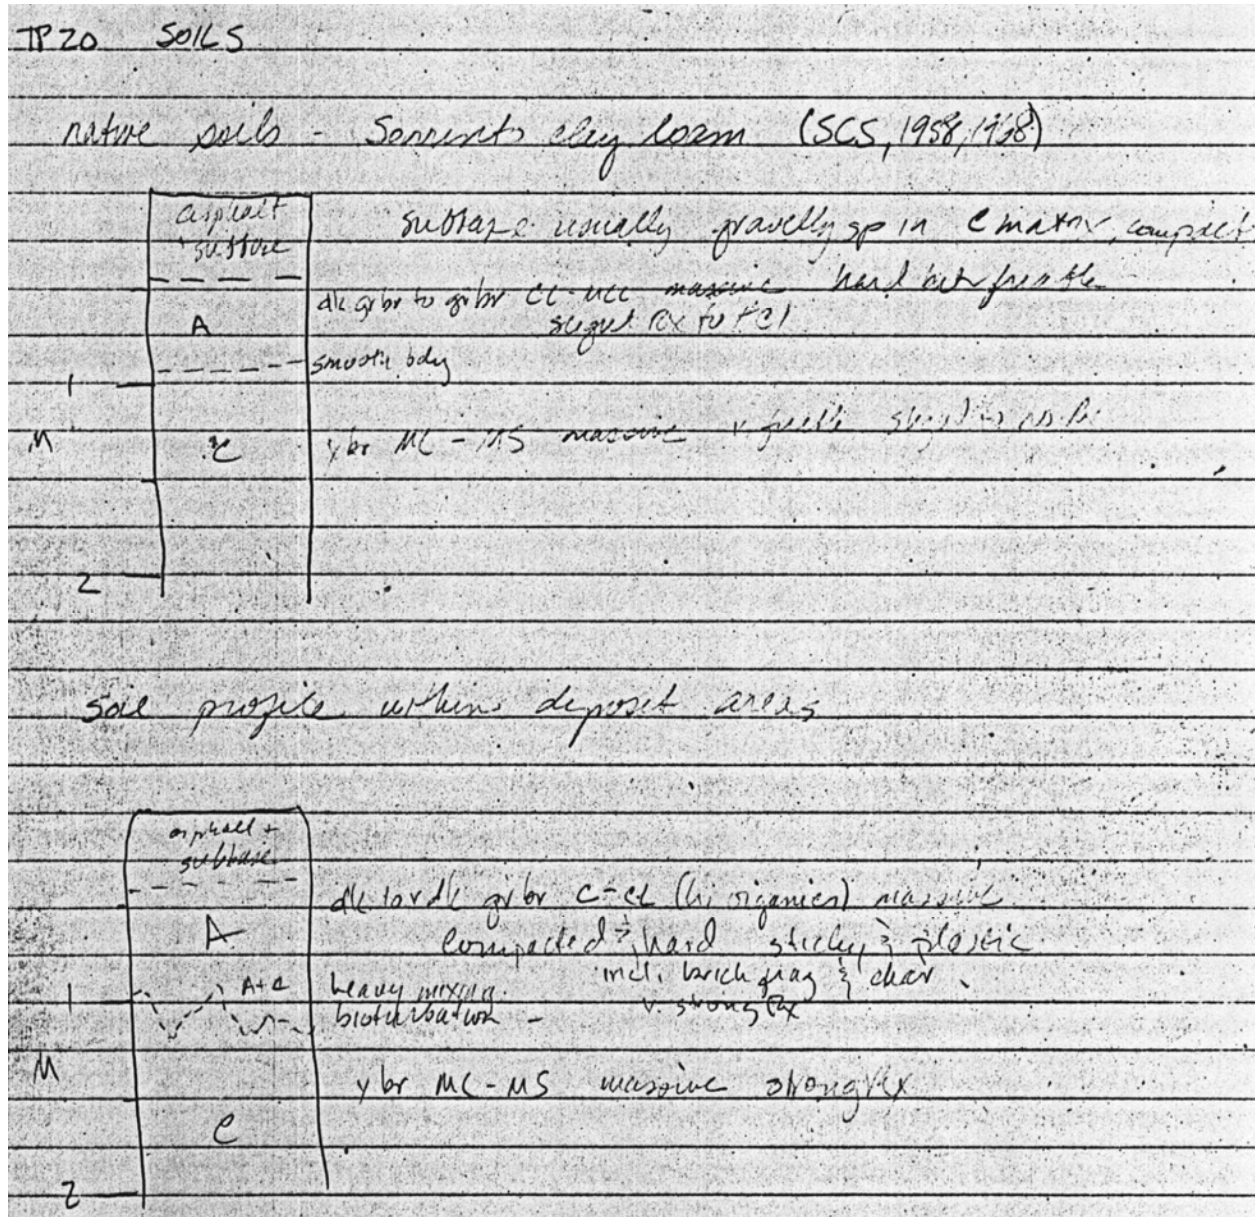 TP 20 SOILS
native soils - Sorrento clay loam (SCS, 1958, 1968)
asphalt
+ subbase
subbase usually gravelly sp in C matrix, compact
dk grbr to grbr CL-MCL massive hard but friable
A
smooth bdy
1
M
C
ybr MC-MS massive v friable
2
soil profile within deposit areas
asphalt +
subbase
dk to v dk gr br C-CL (hi organics) massive
A
compacted & hard sticky & plastic
incl. brick frag & char
1
A+C
heavy mixing
v strong Rx
bioturbation -
M
ybr MC-MS massive strong Rx
C
2